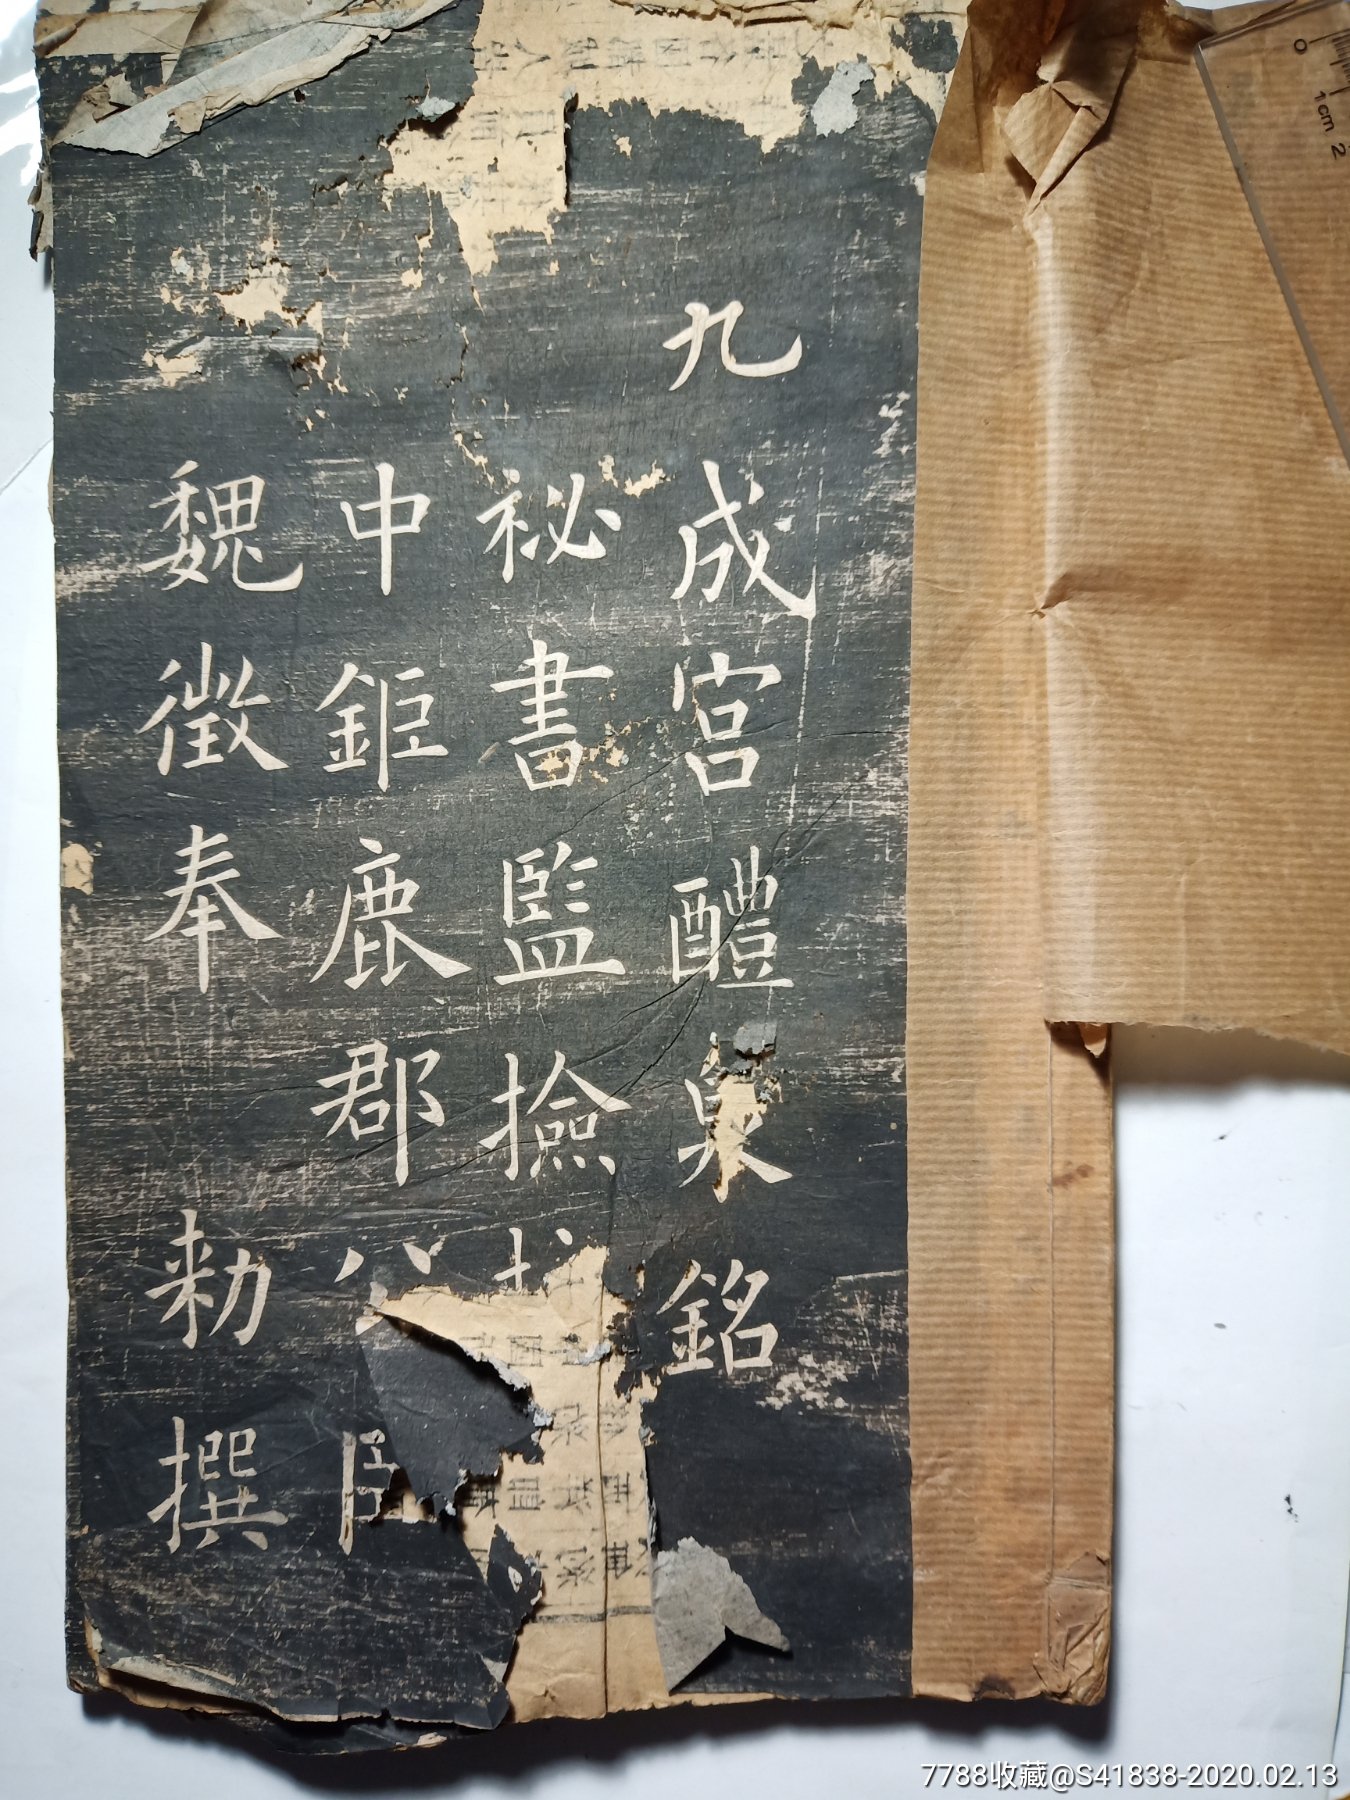 九成宫醴泉銘
祕書監撿
中鉅鹿郡
魏徵奉 勑撰
0 1cm 2
7788收藏@S41838-2020.02.13